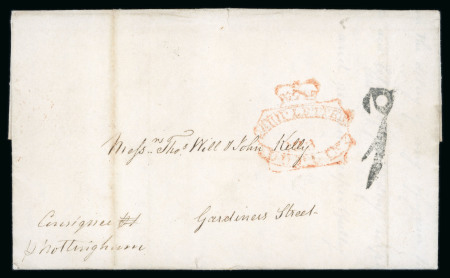 SHIP LETTER
Messrs Thos Will & John Kelly
Gardiners Street
Consignee
p Nottingham